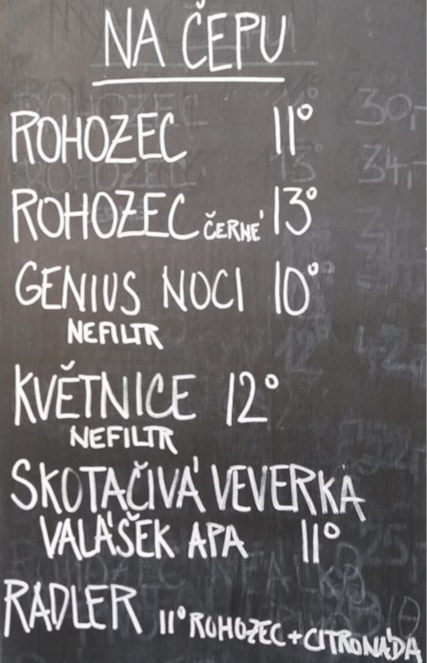 NA ČEPU
ROHOZEC 11°
ROHOZEC ČERNÉ 13°
GENIUS NOCI 10°
NEFILTR
KVĚTNICE 12°
NEFILTR
SKOTAČIVÁ VEVERKA
VALÁŠEK APA 11°
RADLER 11° ROHOZEC + CITRONÁDA
30,-
34,-